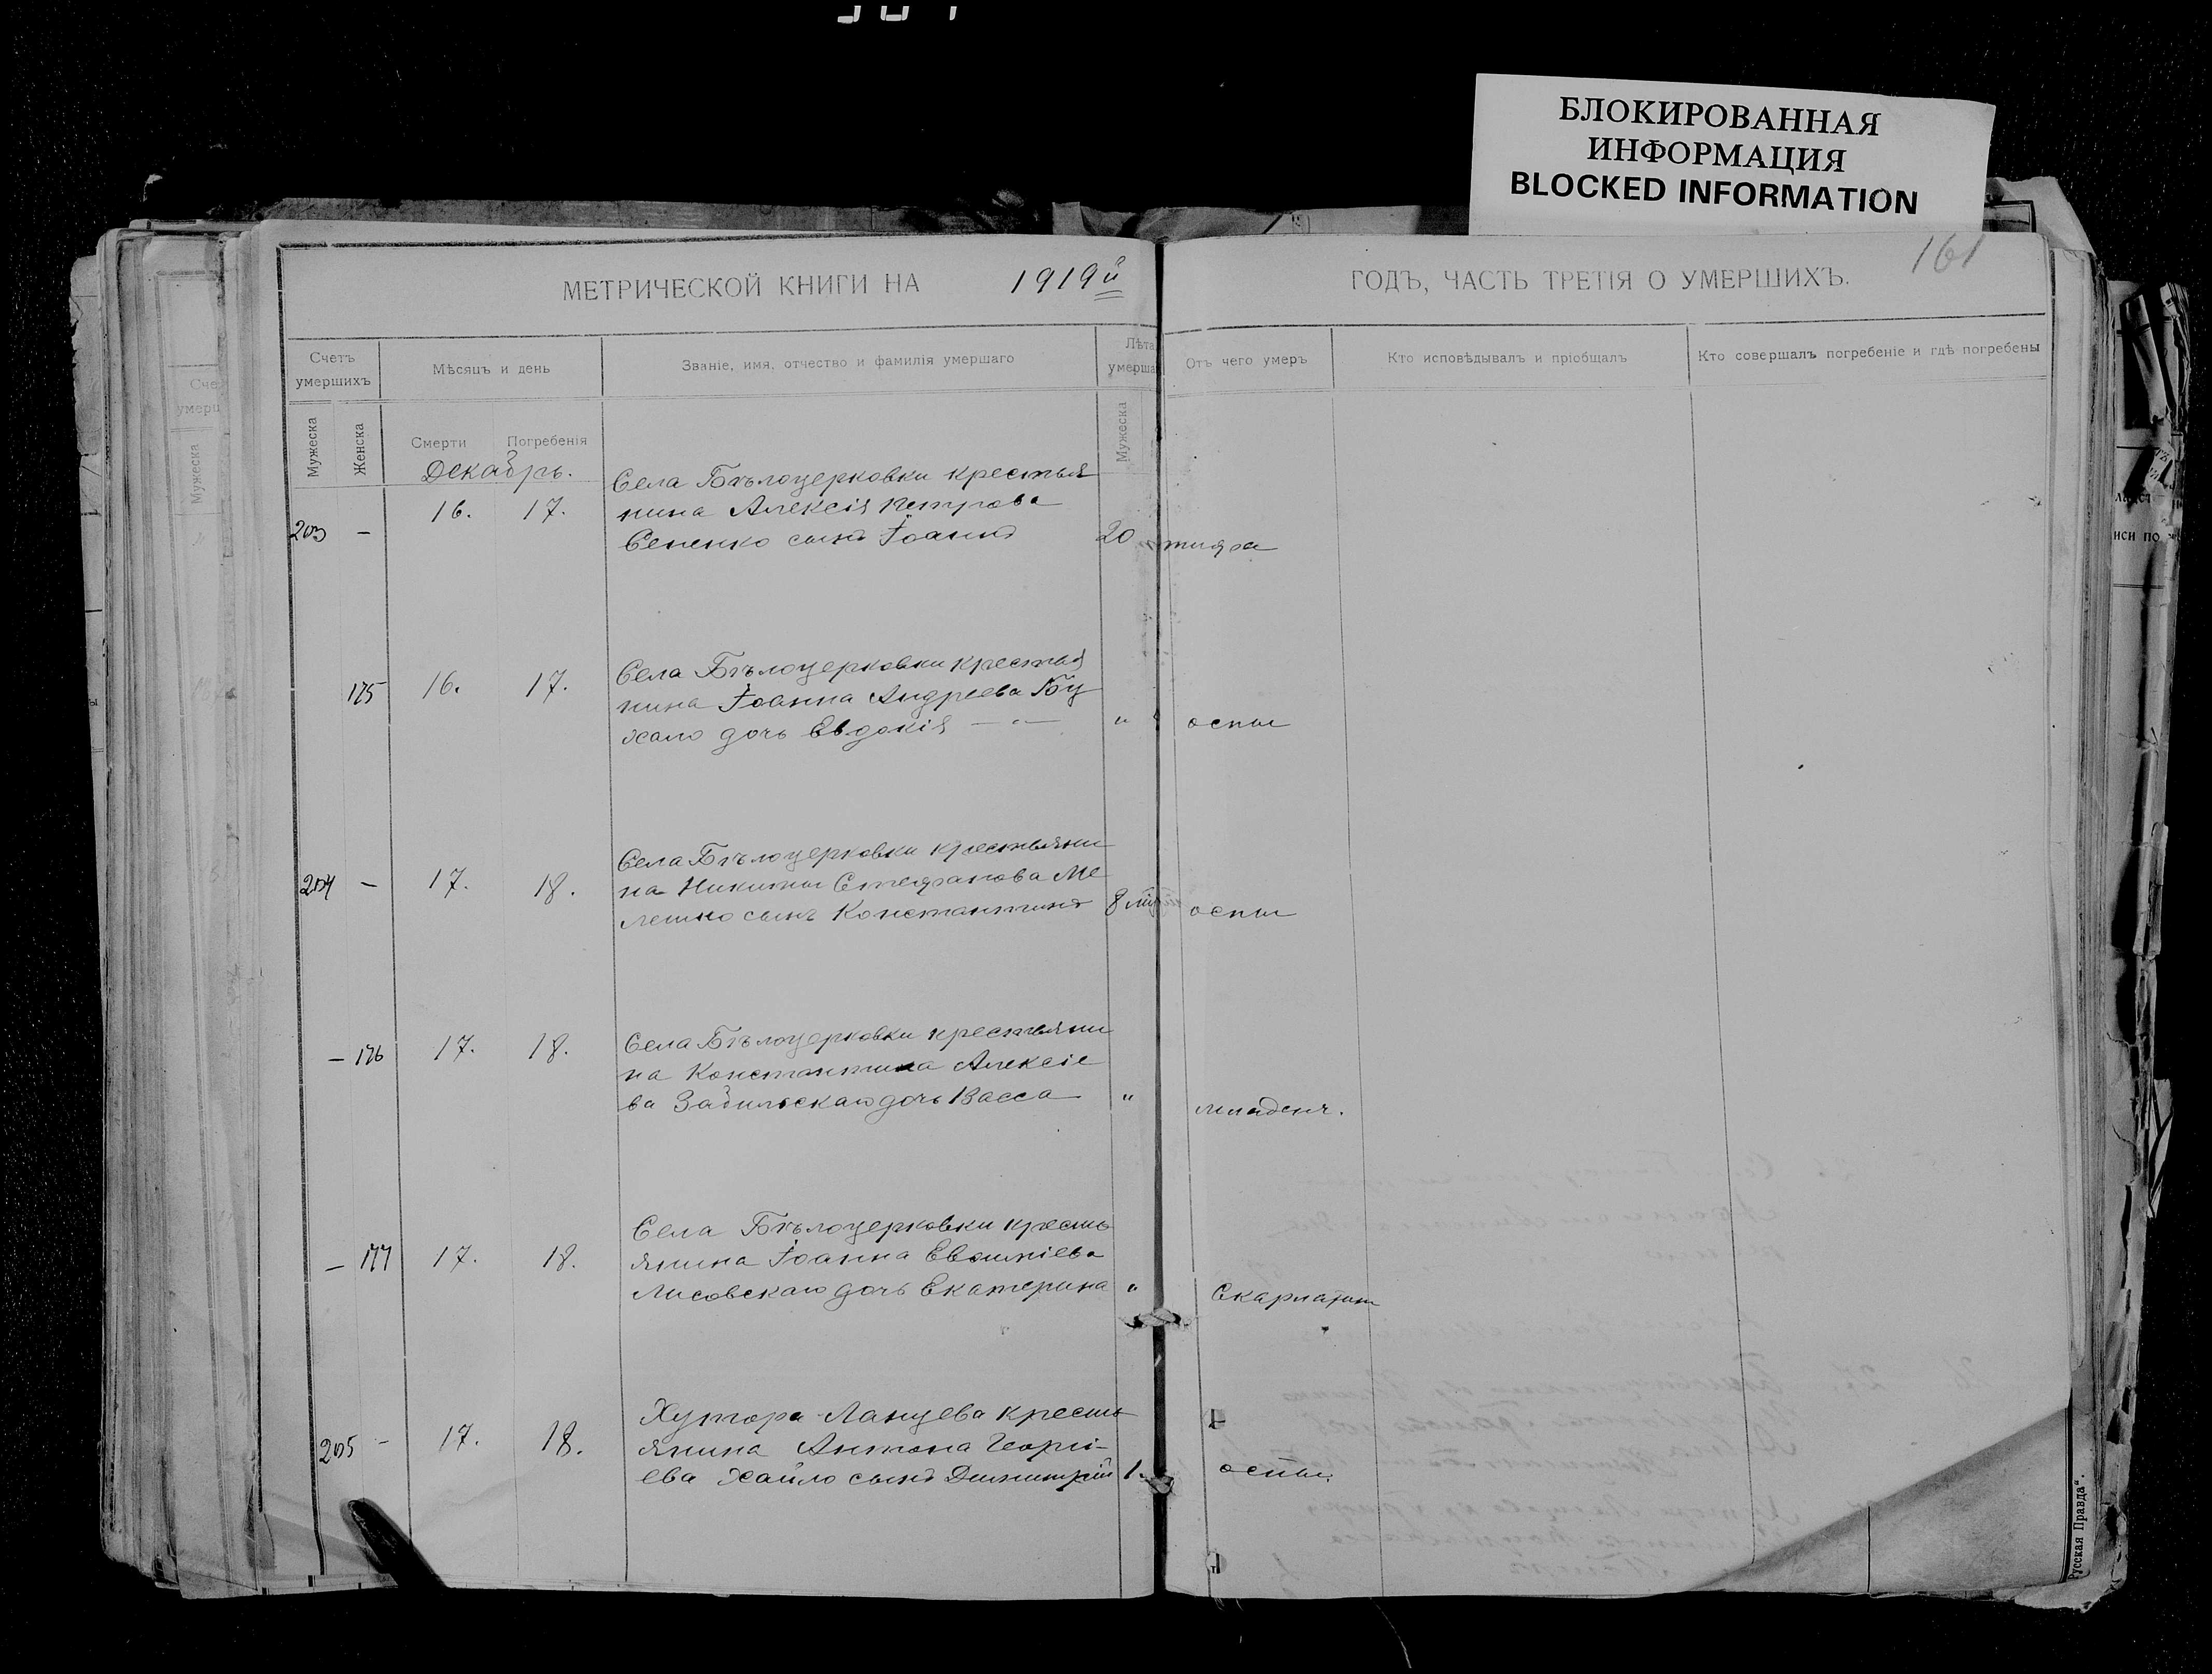 БЛОКИРОВАННАЯ
ИНФОРМАЦИЯ
BLOCKED INFORMATION
161
МЕТРИЧЕСКОЙ КНИГИ НА 1919й ГОДЪ, ЧАСТЬ ТРЕТІЯ О УМЕРШИХЪ.
Счетъ умершихъ
Мѣсяцъ и день
Званіе, имя, отчество и фамилія умершаго
Лѣта умерша
Отъ чего умеръ
Кто исповѣдывалъ и пріобщалъ
Кто совершалъ погребеніе и гдѣ погребены
Мужеска
Женска
Смерти
Погребенія
Мужеска
Декабрь.
203 – 16. 17.
Села Бѣлоцерковки крестья
нина Алексія Петрова
Сененко сынъ Іоаннъ
20 тифа
175 16. 17.
Села Бѣлоцерковки крестья
нина Іоанна Андреева Бу
хало дочь Евдокія — " —
" оспы
204 – 17. 18.
Села Бѣлоцерковки крестьяни
на Никиты Стефанова Ме
лешко сынъ Константинъ
8 оспы
– 176 17. 18.
Села Бѣлоцерковки крестьяни
на Константина Алексіе
ва дочь Васса
" младенч.
– 177 17. 18.
Села Бѣлоцерковки кресть
янина Іоанна Евфиміева
Лисовскаго дочь Екатерина
" Скарлатин
205 – 17. 18.
Хутора Ланцева кресть
янина Антона Георгі-
ева Хайло сынъ Димитрій
1. оспы.
Русская Правда".